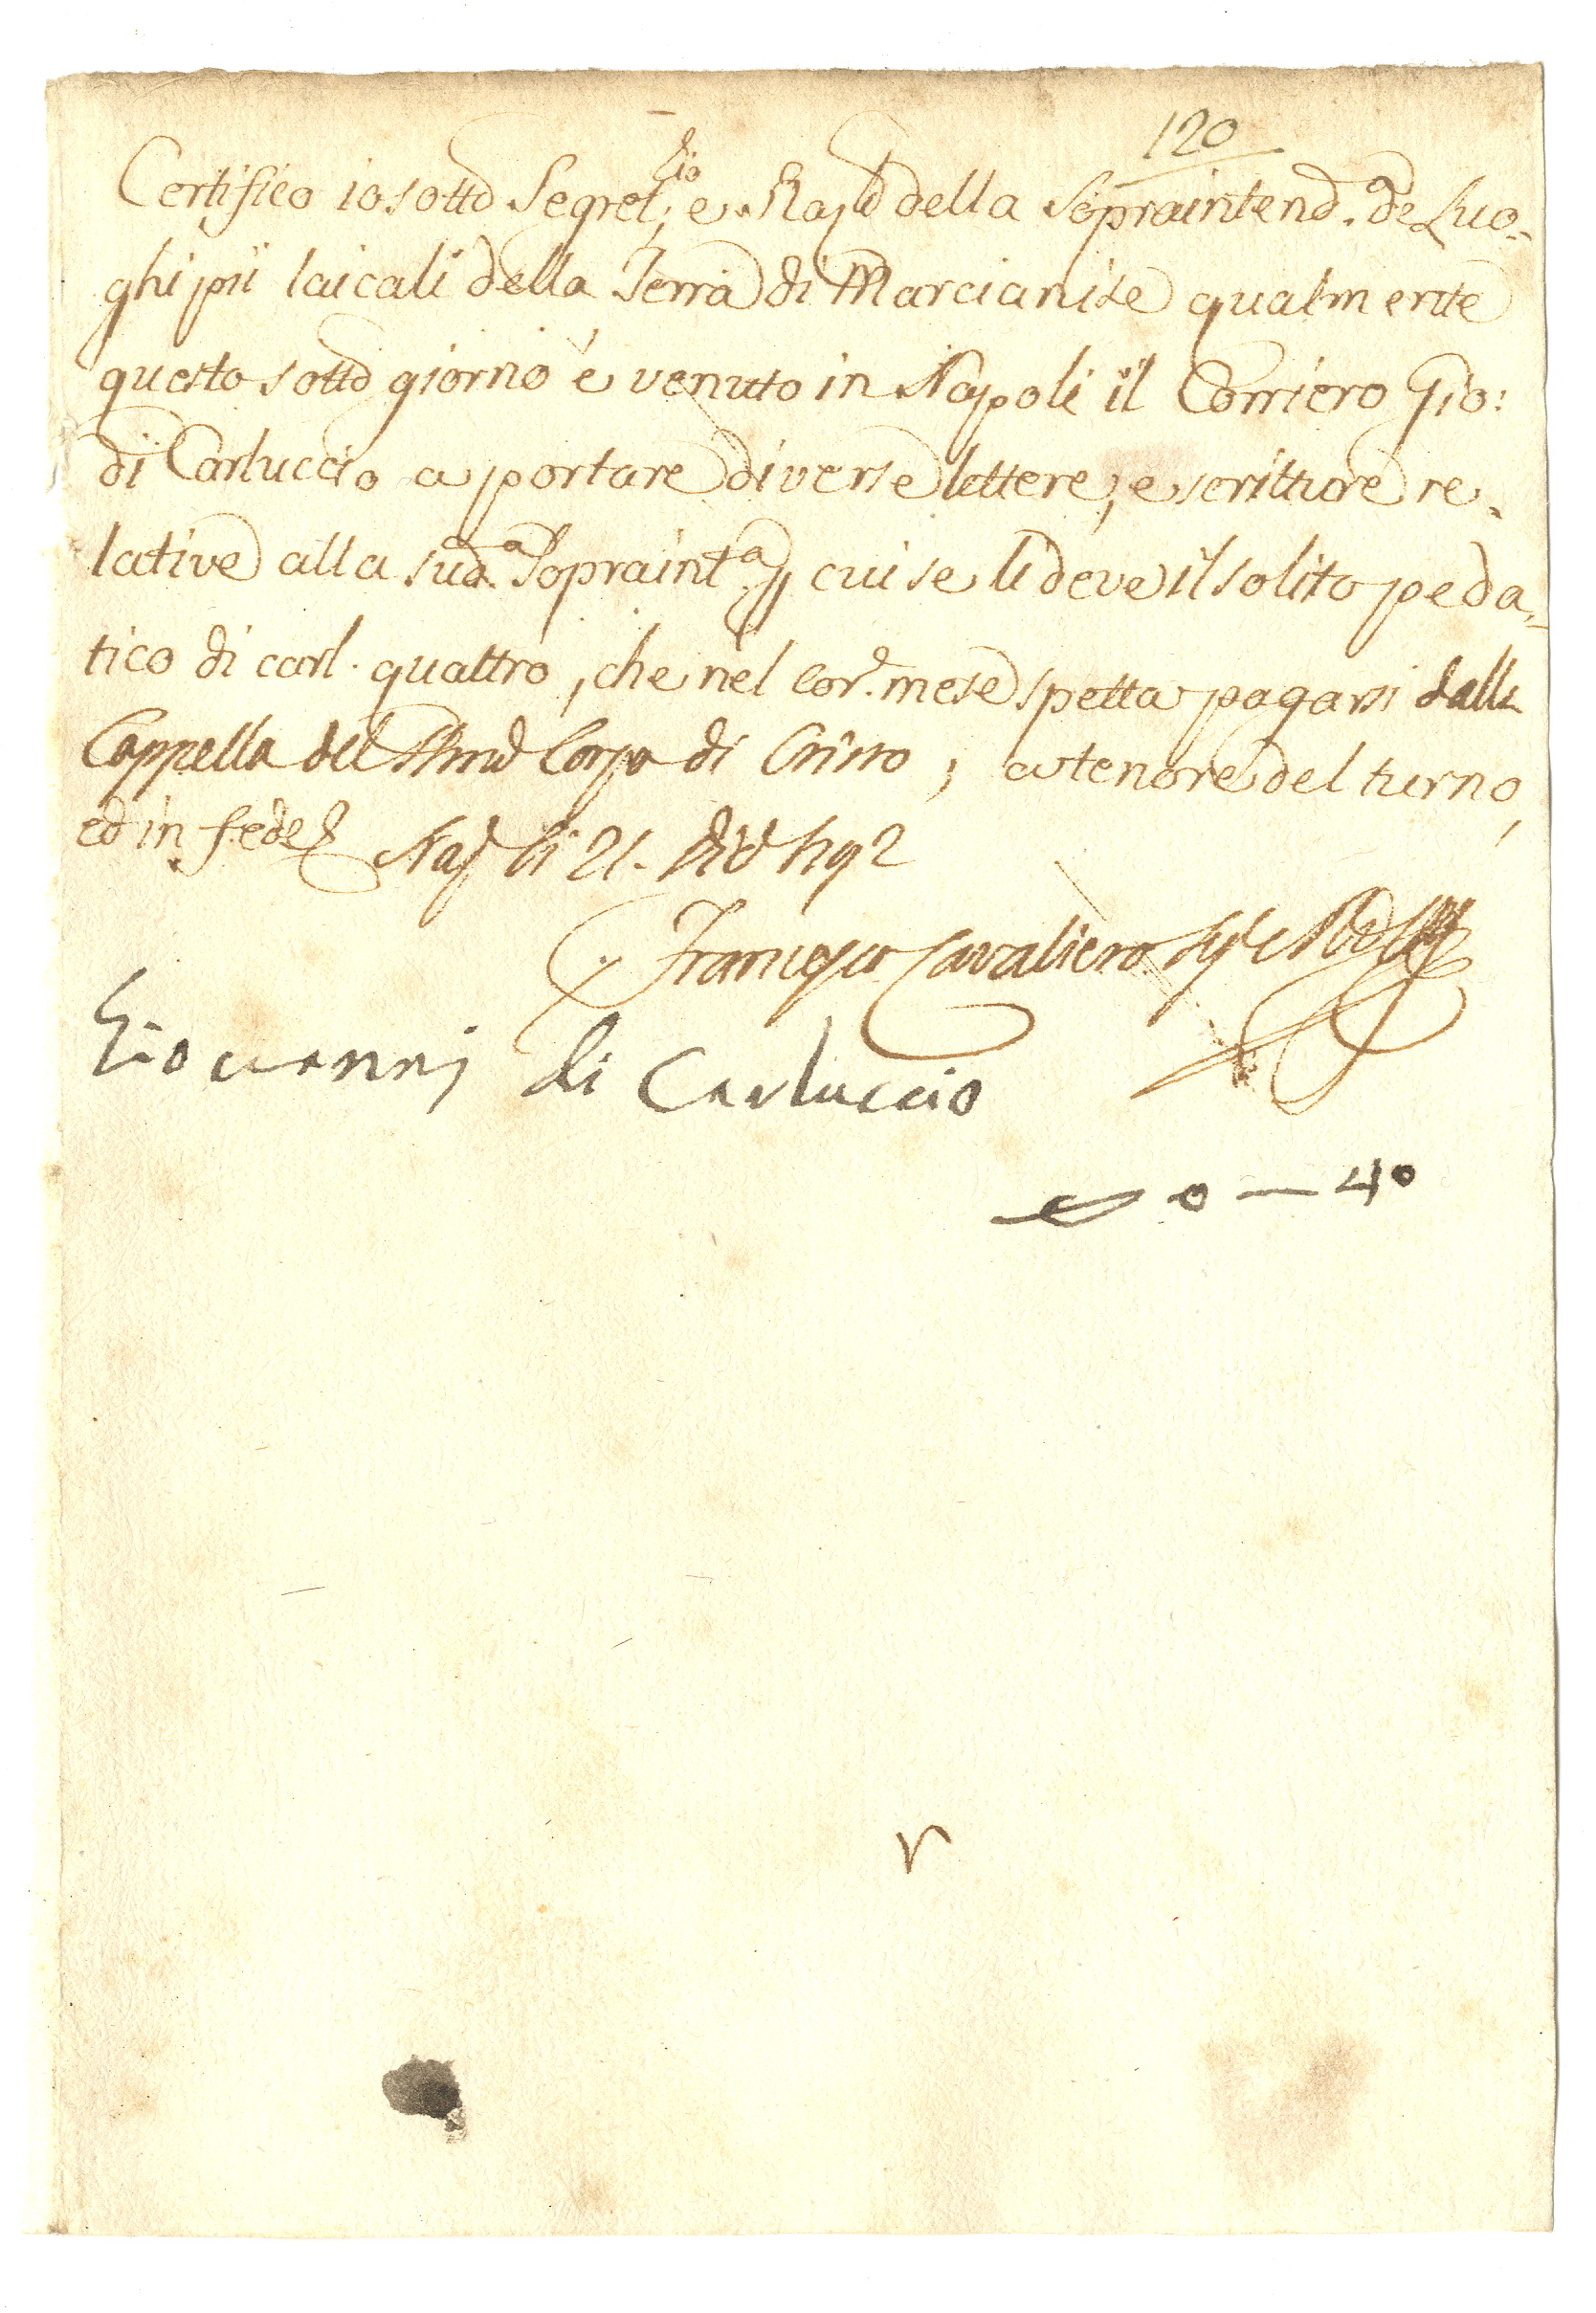 120
Certifico io sotto Segret.rio e Raz.le della Sopraintend.a de Luo-
ghi pii laicali della Terra di Marcianise qualmente
questo sotto giorno è venuto in Napoli il Corriero Gio:
di Carluccio a portare diverse lettere, e scritture re-
lative alla sud.a Sopraint.a, cui se li deve il solito peda-
tico di carl. quattro, che nel cor.e mese spetta pagarsi dalla
Cappella del Corpo di Cristo, a tenore del turno,
ed in fede Nap. li 21.
Francesco Cavaliero
Giovanni di Carluccio
0 — 40